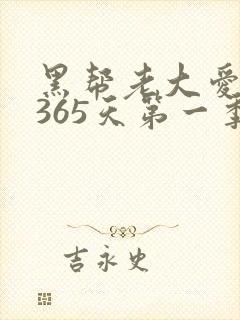 黑帮老大爱
365天第一季
吉永史